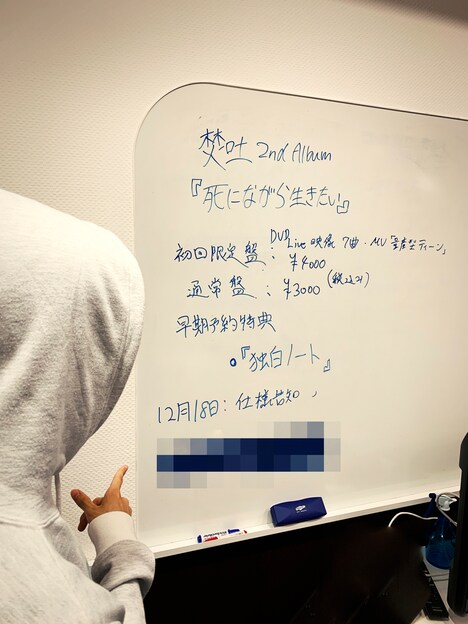 焚吐 2nd Album
『死にながら生きたい』
初回限定盤：DVD Live映像 7曲・MV「量産型ティーン」
¥4000
通常盤：¥3000（税込み）
早期予約特典
・『独白ノート』
12月18日：仕様告知